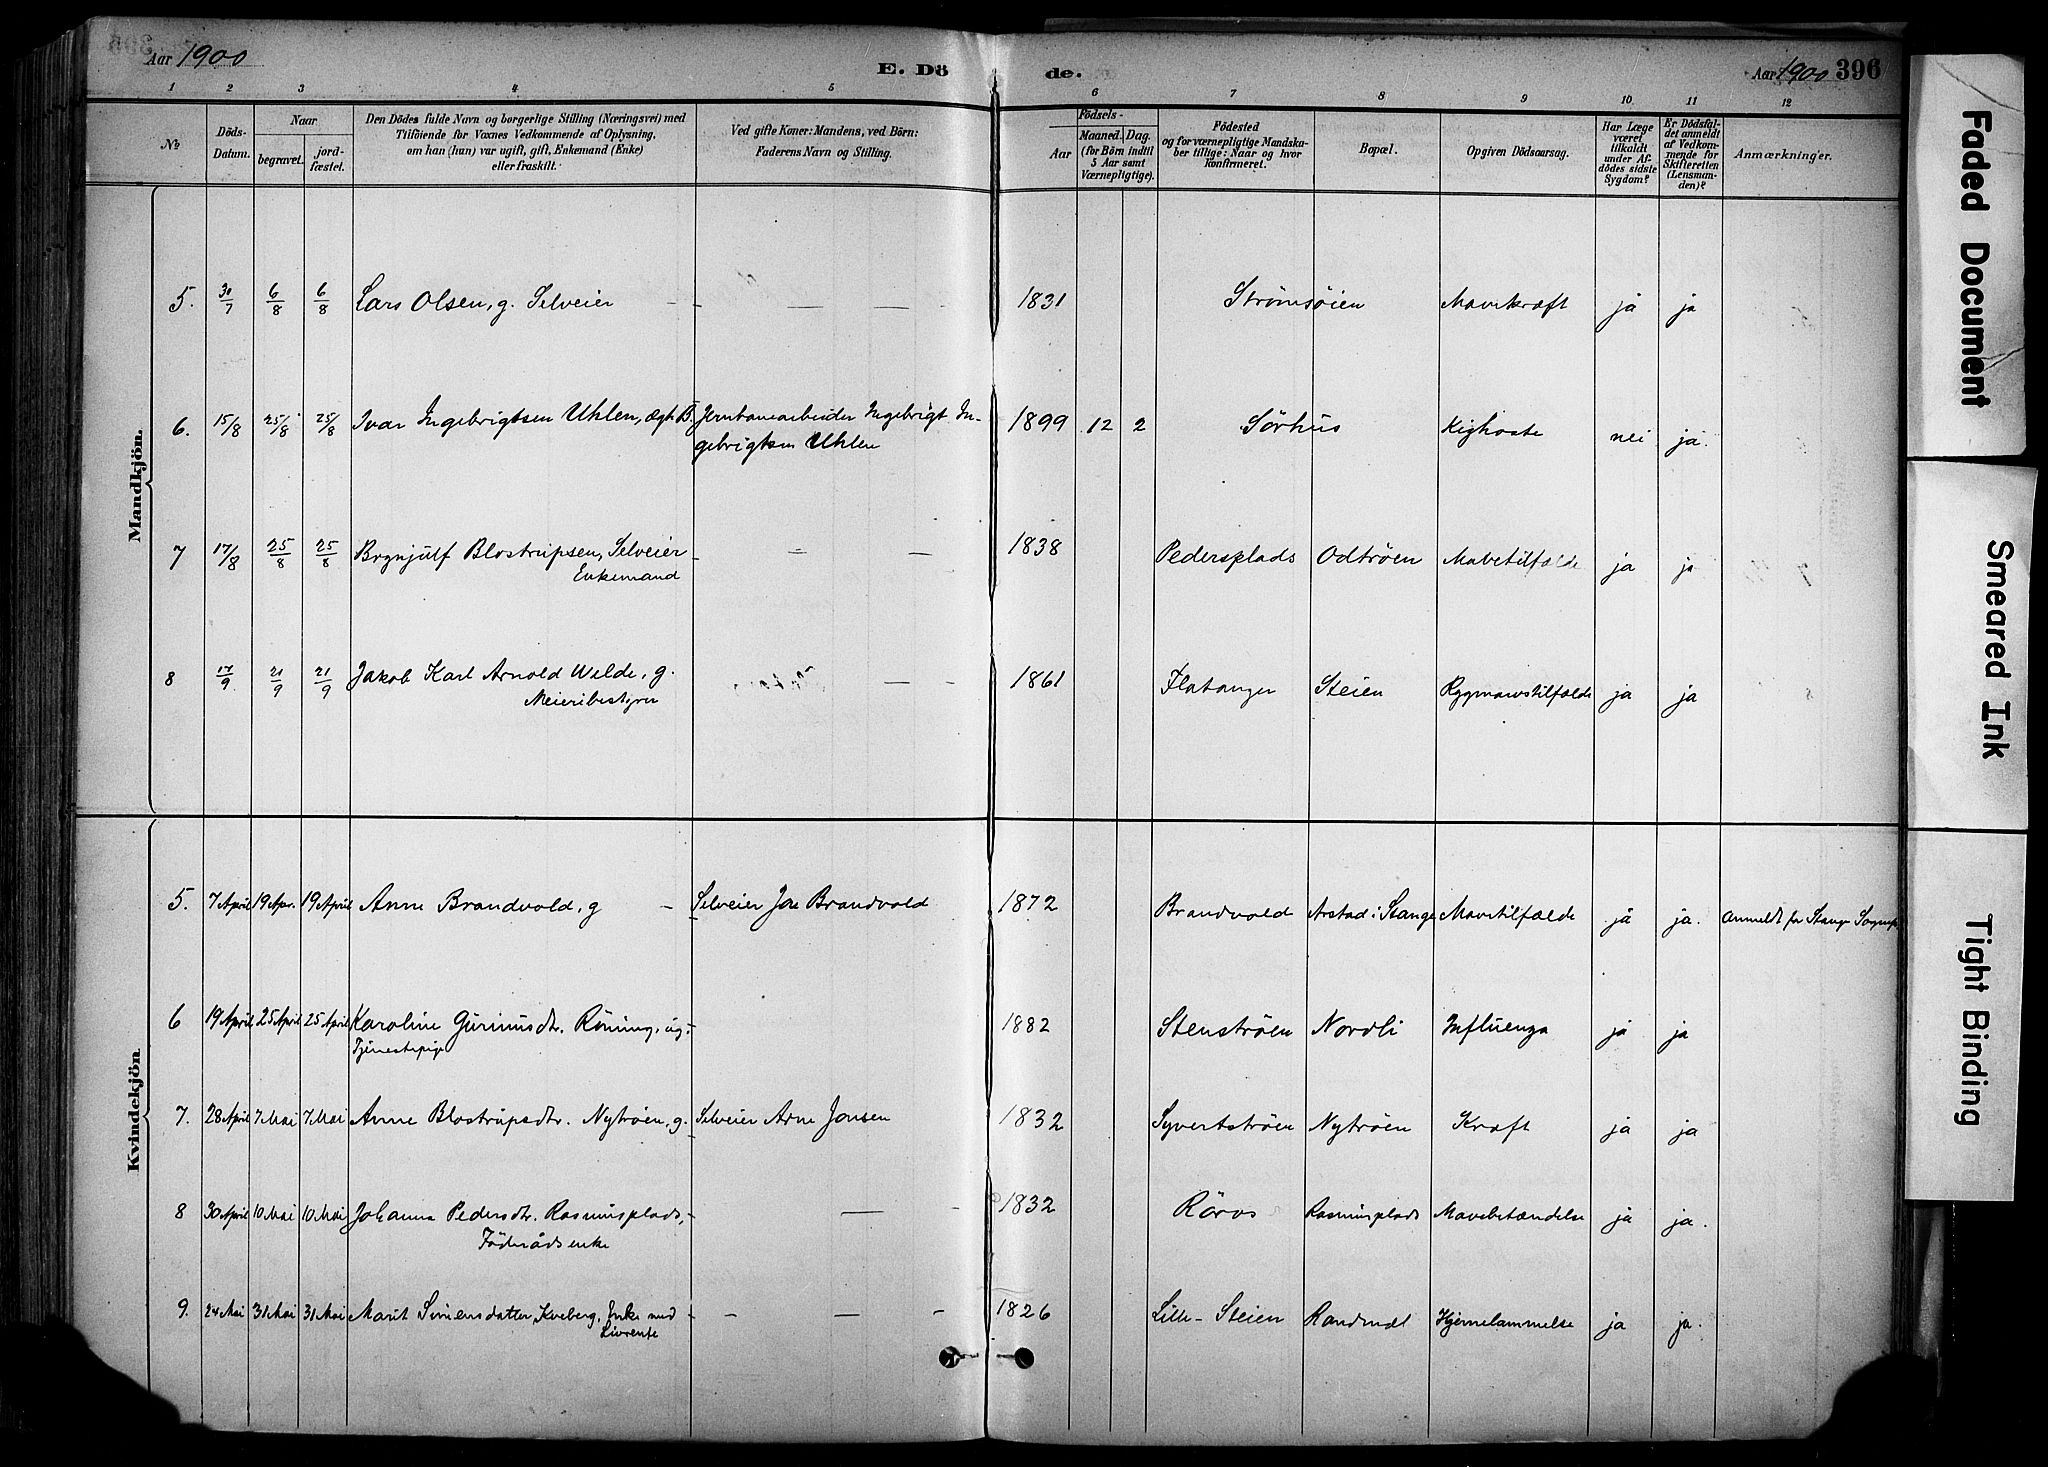 Aar 1900
E. Dö
de.
Aar 1900 396
1 2 3 4 5 6 7 8 9 10 11 12
№
Döds-
Datum.
Naar
begravet.
jord-
fæstet.
Den Dödes fulde Navn og borgerlige Stilling (Næringsvei) med
Tilföiende for Voxnes Vedkommende af Oplysning,
om han (hun) var ugift, gift, Enkemand (Enke)
eller fraskilt.
Ved gifte Koner: Mandens, ved Börn:
Faderens Navn og Stilling.
Födsels-
Aar
Maaned. Dag.
(for Börn indtil
5 Aar samt
Værnepligtige).
Födested
og for værnepligtige Mandska-
ber tillige: Naar og hvor
konfirmeret.
Bopæl.
Opgiven Dödsaarsag.
Har Læge
været
tilkaldt
under Af-
dödes sidste
Sygdom?
Er Dödsfal-
det anmeldt
af Vedkom-
mende for
Skifteretten
(Lensman-
den)?
Anmærkninger.
Mandkjön.
5. 30/7 6/8 6/8 Lars Olsen, g. Selveier - — — 1831 Strømsöien Mavekræft ja ja
6. 15/8 25/8 25/8 Ivar Ingebrigtsen Uhlen, ægb. Jernbanearbeider Ingebrigt In- 1899 12 2 Sörhus Kighoste nei ja.
gebrigtsen Uhlen
7 17/8 25/8 25/8 Brynjulf Blostrupsen, Selveier - — — 1838 Pedersplads Odtröen Mavetilfælde ja ja
Enkemand
8 17/9 21/9 21/9 Jakob Karl Arnold Welde, g. — — 1861 Flatanger Steien Rygmarvstilfælde ja ja
Meieribestyrer
Kvindekjön.
5. 7 April 19 Apr. 19 April Anne Brandvold, g - Selveier Jon Brandvold 1872 Brandvold Arstad i Stange Mavetilfælde ja ja. Anmeldt for Stange Sognepr
6 19 April 25 April 25 April Karoline Gurinusdtr. Röning, ug. - 1882 Stenströen Nordli Influenza ja ja
Tjenestepige
7. 28 April 7 Mai 7 Mai Anne Blostrupsdtr. Nytröen, g. Selveier Arne Jonsen 1832 Syvertströen Nytröen Kræft ja ja
8 30 April 10 Mai 10 Mai Johanna Pedersdtr. Rasmusplads, - — - 1832 Röros Rasmusplads Mavebetændelse ja ja.
Föderådsenke
9. 24 Mai 31 Mai 31 Mai Marit Simensdatter Kveberg, Enke med - — - 1826 Lille-Steien Randmæl Hjernelammelse ja ja.
Livrente
Faded Document
Smeared Ink
Tight Binding